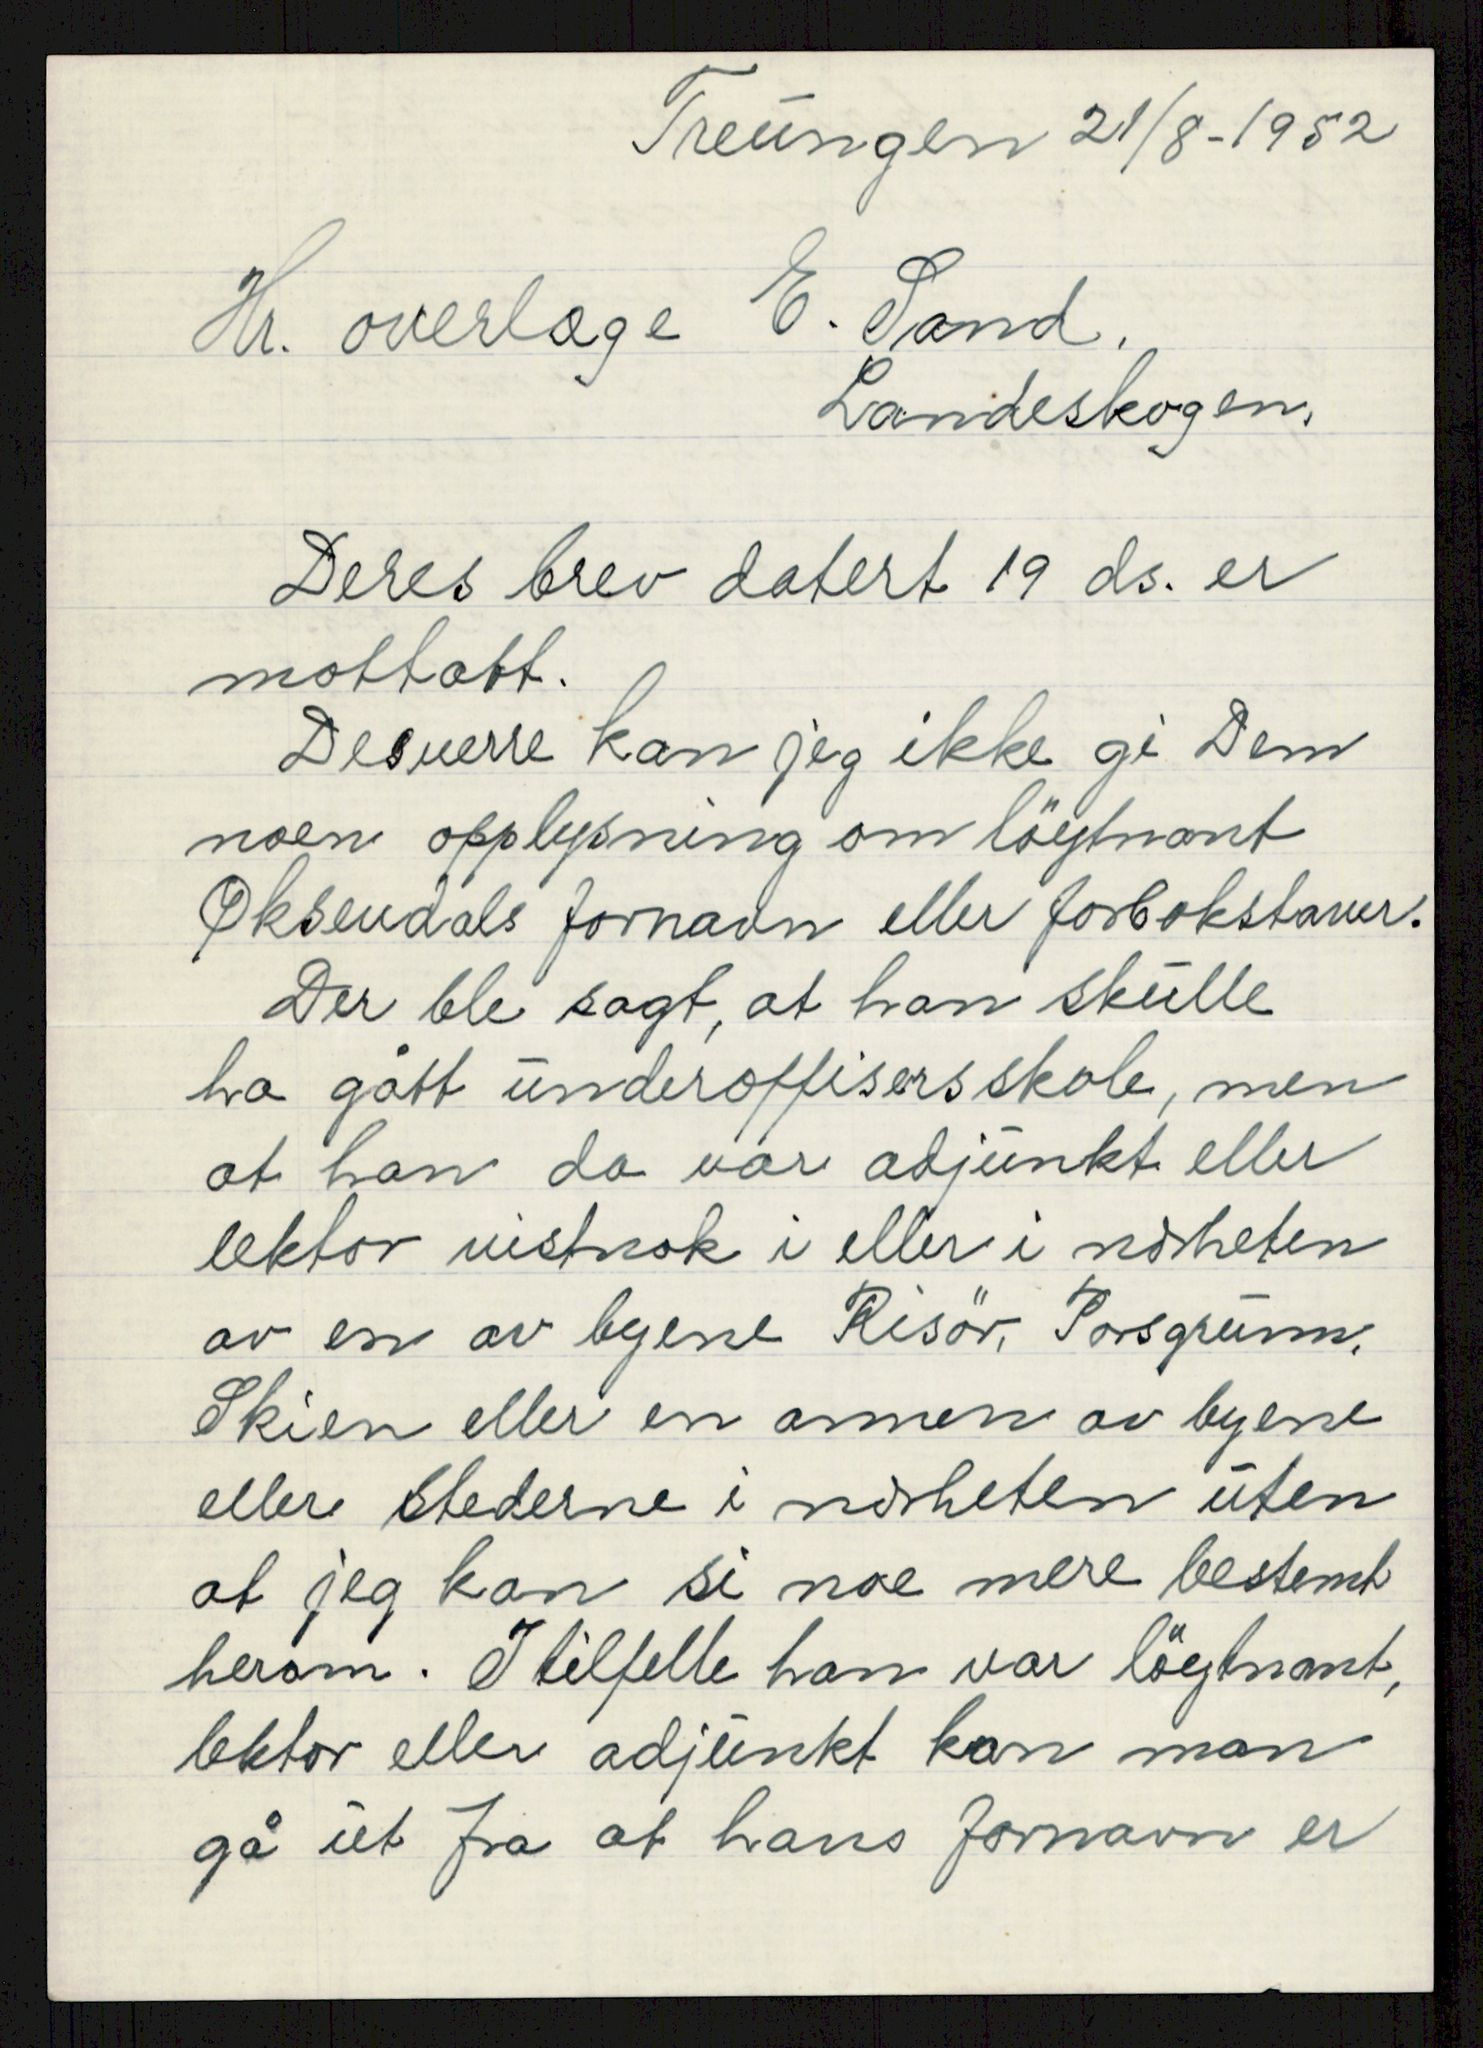 Treungen 21/8-1952
Hr. overlæge E. Sand.
Landeskogen.
Deres brev datert 19 ds. er
mottatt.
Desverre kan jeg ikke gi Dem
noen opplysning om löytnant
Øksendals fornavn eller forbokstaver.
Der ble sagt, at han skulle
ha gått underoffisersskole, men
at han da var adjunkt eller
lektor vistnok i eller i nærheten
av en av byene Risör, Porsgrunn,
Skien eller en annen av byene
eller stederne i nærheten uten
at jeg kan si noe mere bestemt
herom. I tilfelle han var löytnant,
lektor eller adjunkt kan man
gå ut fra at hans fornavn er